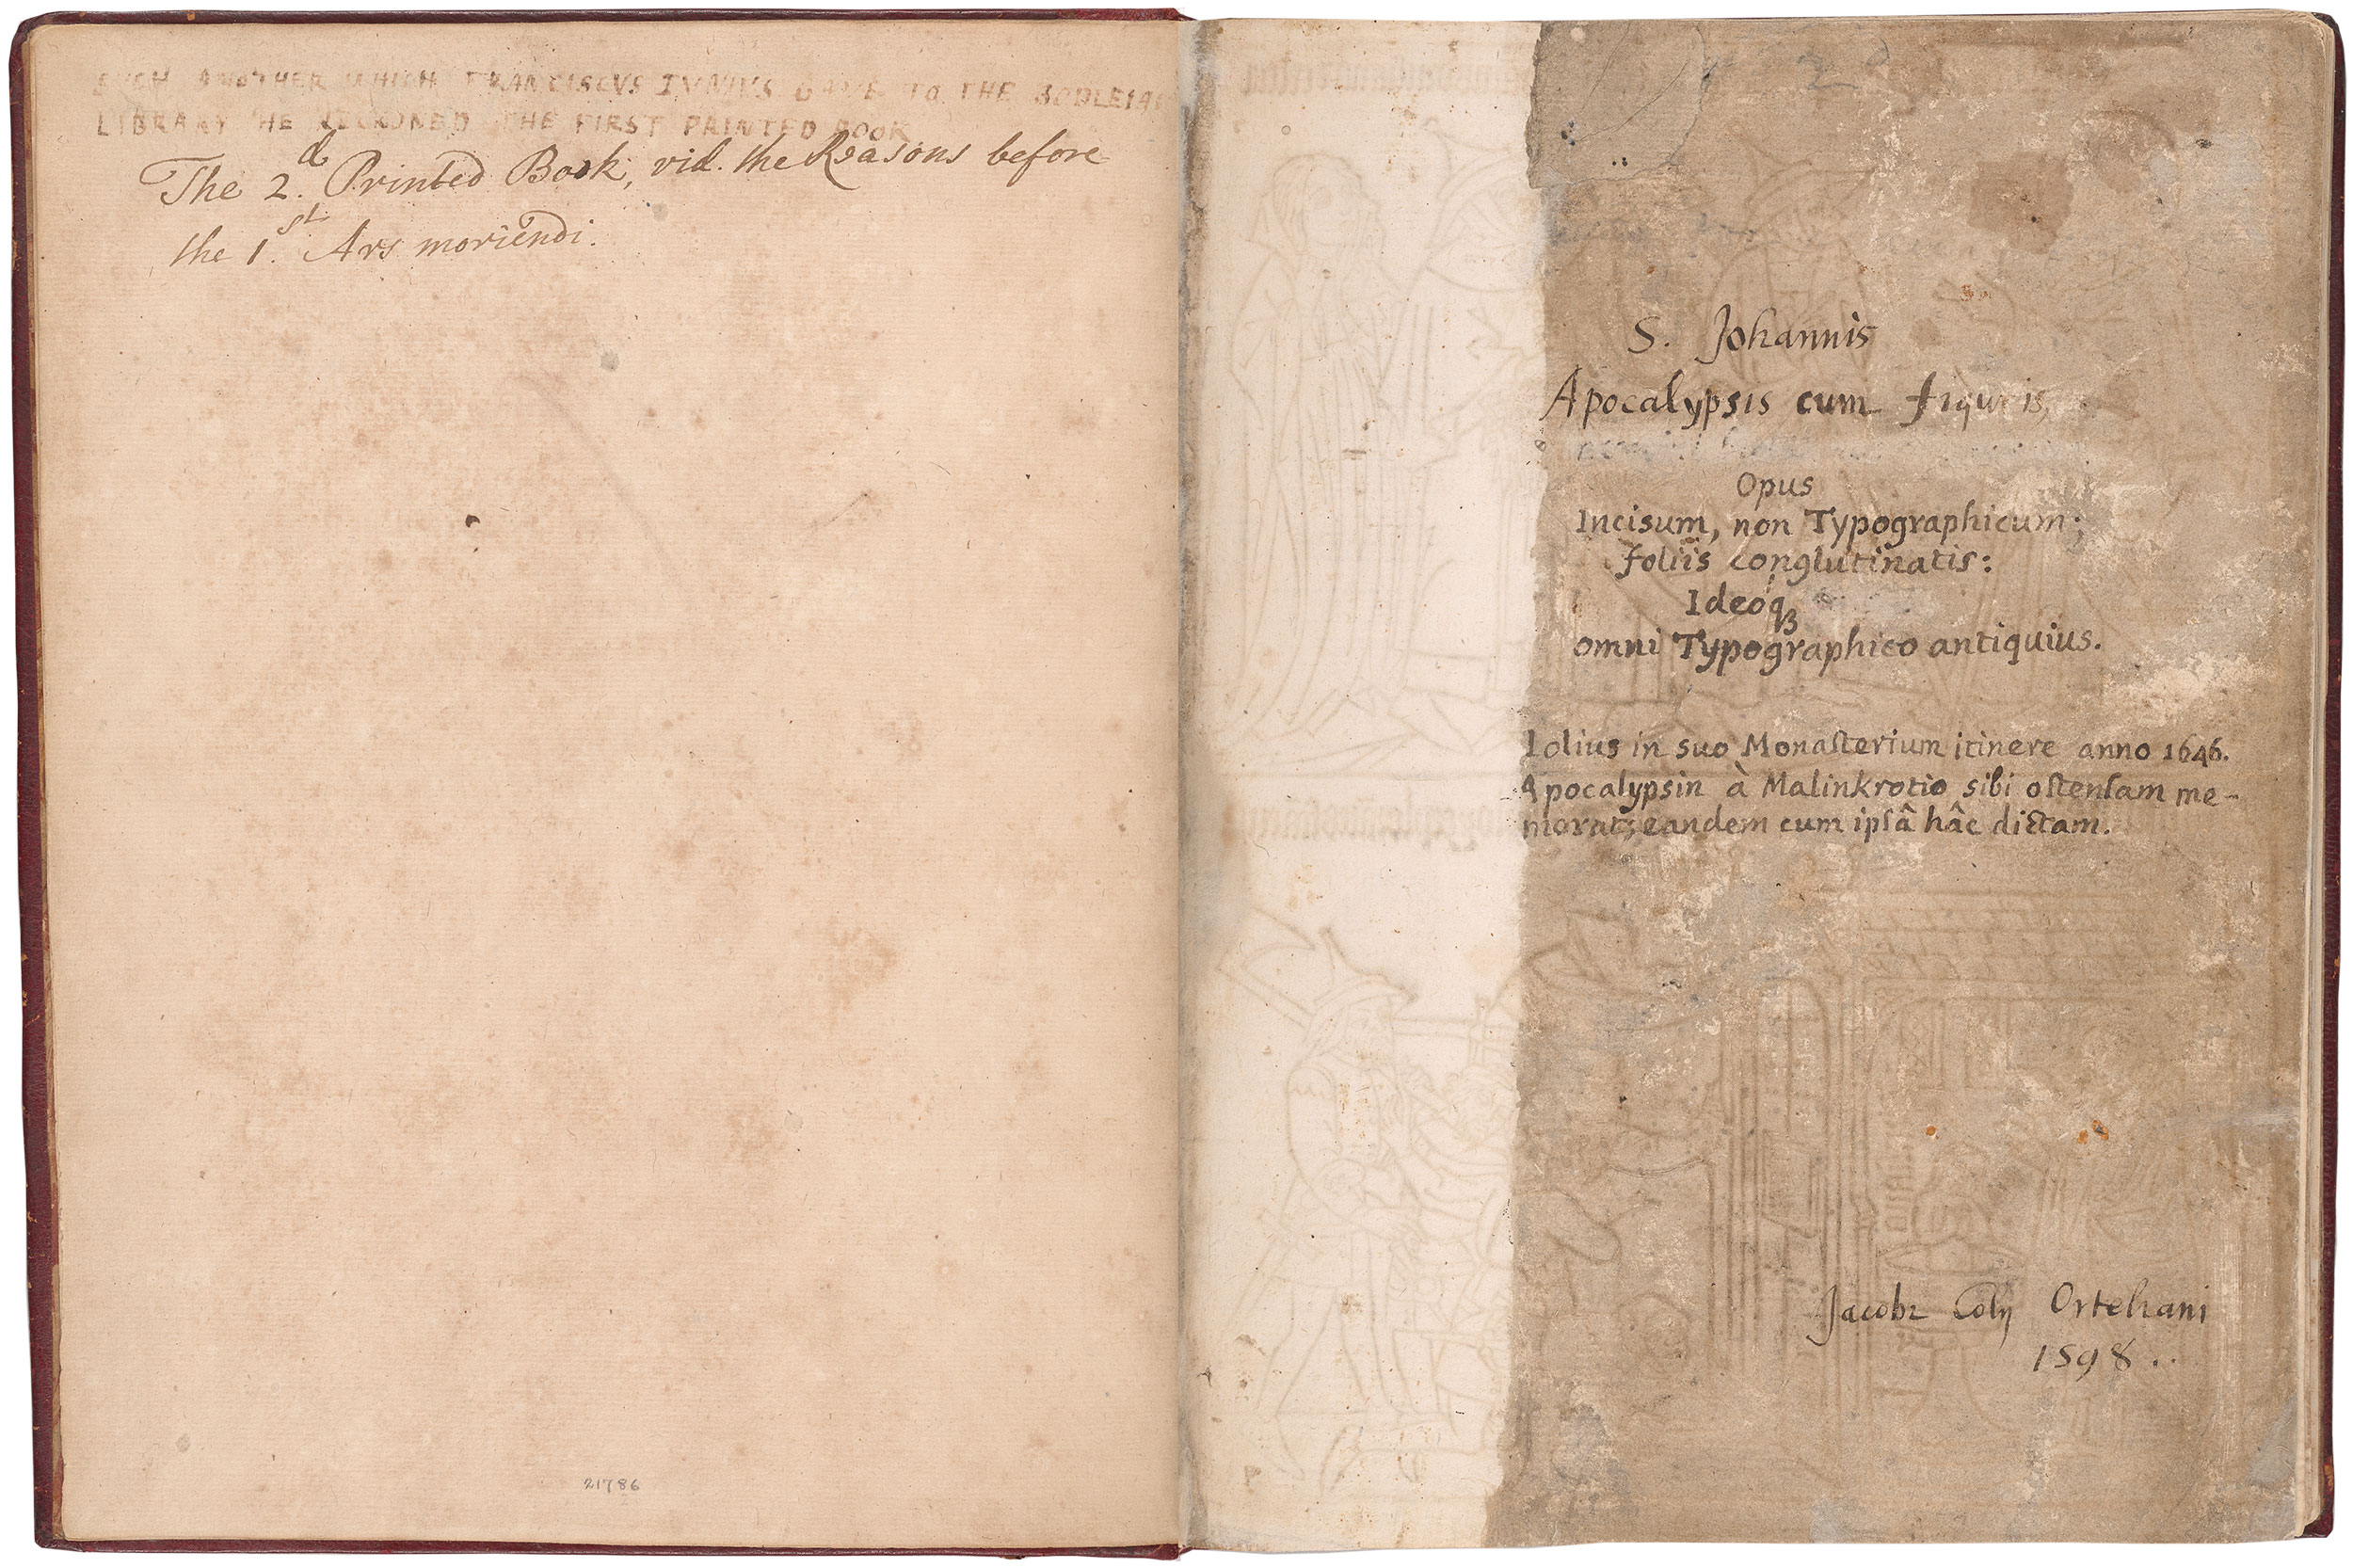 SVCH ANOTHER WHICH FRANCISCVS IVNIVS GAVE TO THE BODLEIAN
LIBRARY HE RECKONED THE FIRST PRINTED BOOK
The 2.d Printed Book, vid. the Reasons before
the 1.st Ars moriendi.
21786
S. Johannis
Apocalypsis cum figuris,
Opus
Incisum, non Typographicum;
foliis conglutinatis:
Ideoqꝫ
omni Typographico antiquius.
Iolius in suo Monaſterium itinere anno 1646.
Apocalypsin à Malinkrotio sibi oſtenſam me-
morat; eandem cum ipſâ hâc dictam.
Jacobi Colij Orteliani
1598..